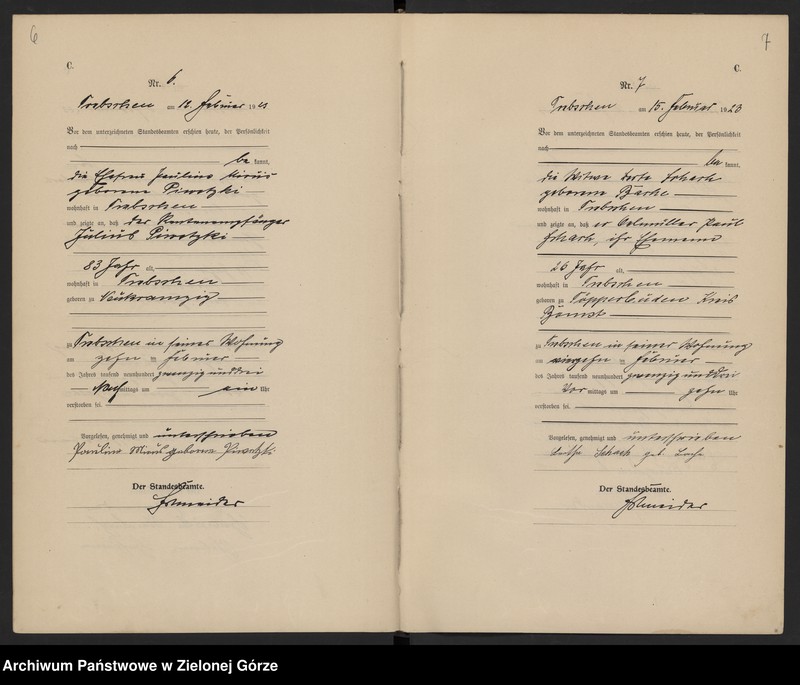 6
C.
Nr. 6.
Trebschen am 12. Februar 1923
Vor dem unterzeichneten Standesbeamten erschien heute, der Persönlichkeit
nach
be kannt,
die Ehefrau Pauline
geborene Piwetzki
wohnhaft in Trebschen
und zeigte an, daß der Rentenempfänger
Julius Piwetzki
83 Jahr alt,
wohnhaft in Trebschen
geboren zu Neukramzig
zu Trebschen in seiner Wohnung
am zehn ten Februar
des Jahres tausend neunhundert zwanzig und drei
Nach mittags um ein Uhr
verstorben sei.
Vorgelesen, genehmigt und unterschrieben
Pauline geborene Piwetzki
Der Standesbeamte.
Schneider
7
C.
Nr. 7
Trebschen am 15. Februar 1923
Vor dem unterzeichneten Standesbeamten erschien heute, der Persönlichkeit
nach
be kannt,
die Witwe Schach
geborene
wohnhaft in Trebschen
und zeigte an, daß er Paul
Schach, ihr Ehemann
26 Jahr alt,
wohnhaft in Trebschen
geboren zu Kreis
Bomst
zu Trebschen in seiner Wohnung
am vierzehn ten Februar
des Jahres tausend neunhundert zwanzig und drei
Vor mittags um zehn Uhr
verstorben sei.
Vorgelesen, genehmigt und unterschrieben
Schach geb.
Der Standesbeamte.
Schneider
Archiwum Państwowe w Zielonej Górze